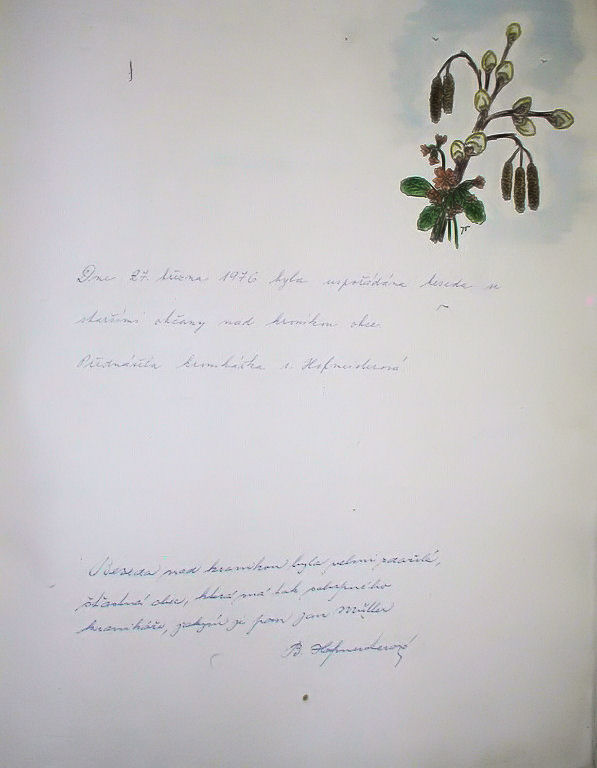 Dne 27. března 1976 byla uspořádána beseda se
staršími občany nad kronikou obce.
Přednášela kronikářka s. Hofneiderová
Beseda nad kronikou byla velmi zdařilá,
šťastná obec, která má tak schopného
kronikáře, jakým je pan Jan Müller
B. Hofneiderová